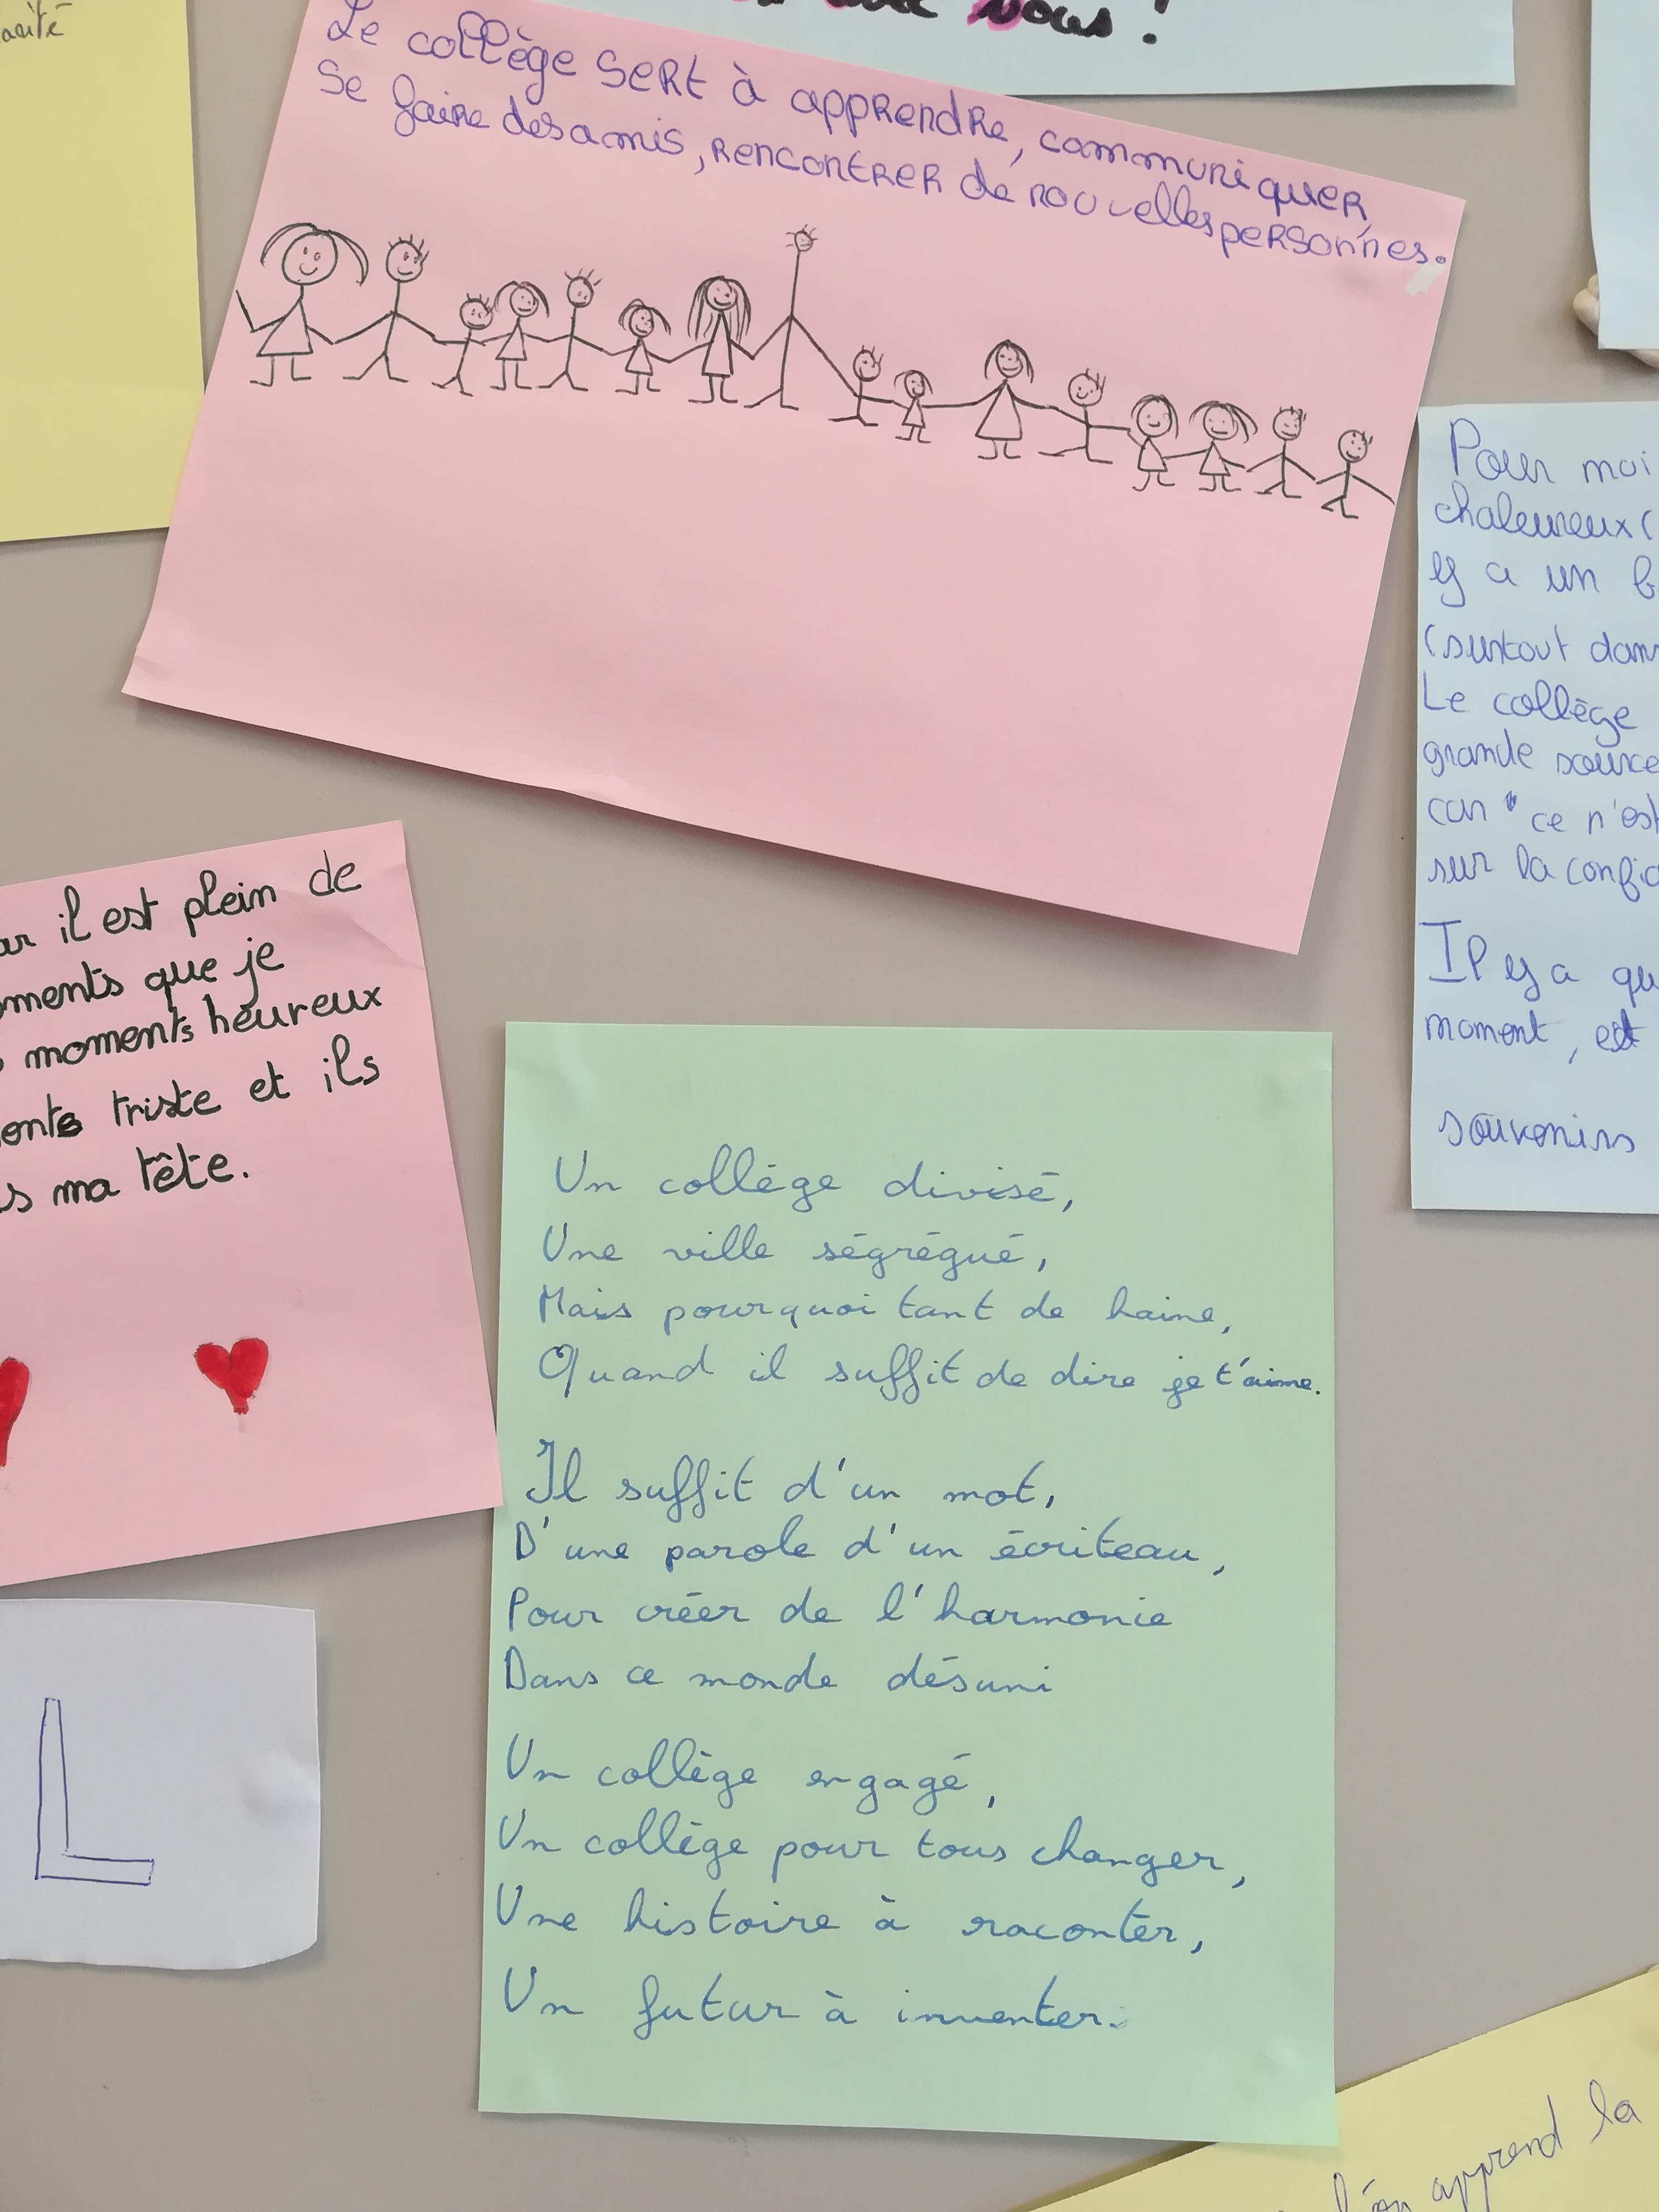 acité
vous !
Le collège sert à apprendre, communiquer,
se faire des amis, rencontrer de nouvelles personnes.
Pour moi
chaleureux (
y a un
(surtout dans
Le collège
grande source
car " ce n'est
sur la
Il y a
moment, et
souvenirs
il est plein de
que je
moments heureux
triste et ils
ma tête.
Un collège divisé,
Une ville ségrégué,
Mais pourquoi tant de haine,
Quand il suffit de dire je t'aime.
Il suffit d'un mot,
D'une parole d'un écriteau,
Pour créer de l'harmonie
Dans ce monde désuni
Un collège engagé,
Un collège pour tous changer,
Une histoire à raconter,
Un futur à inventer.
L
apprend la